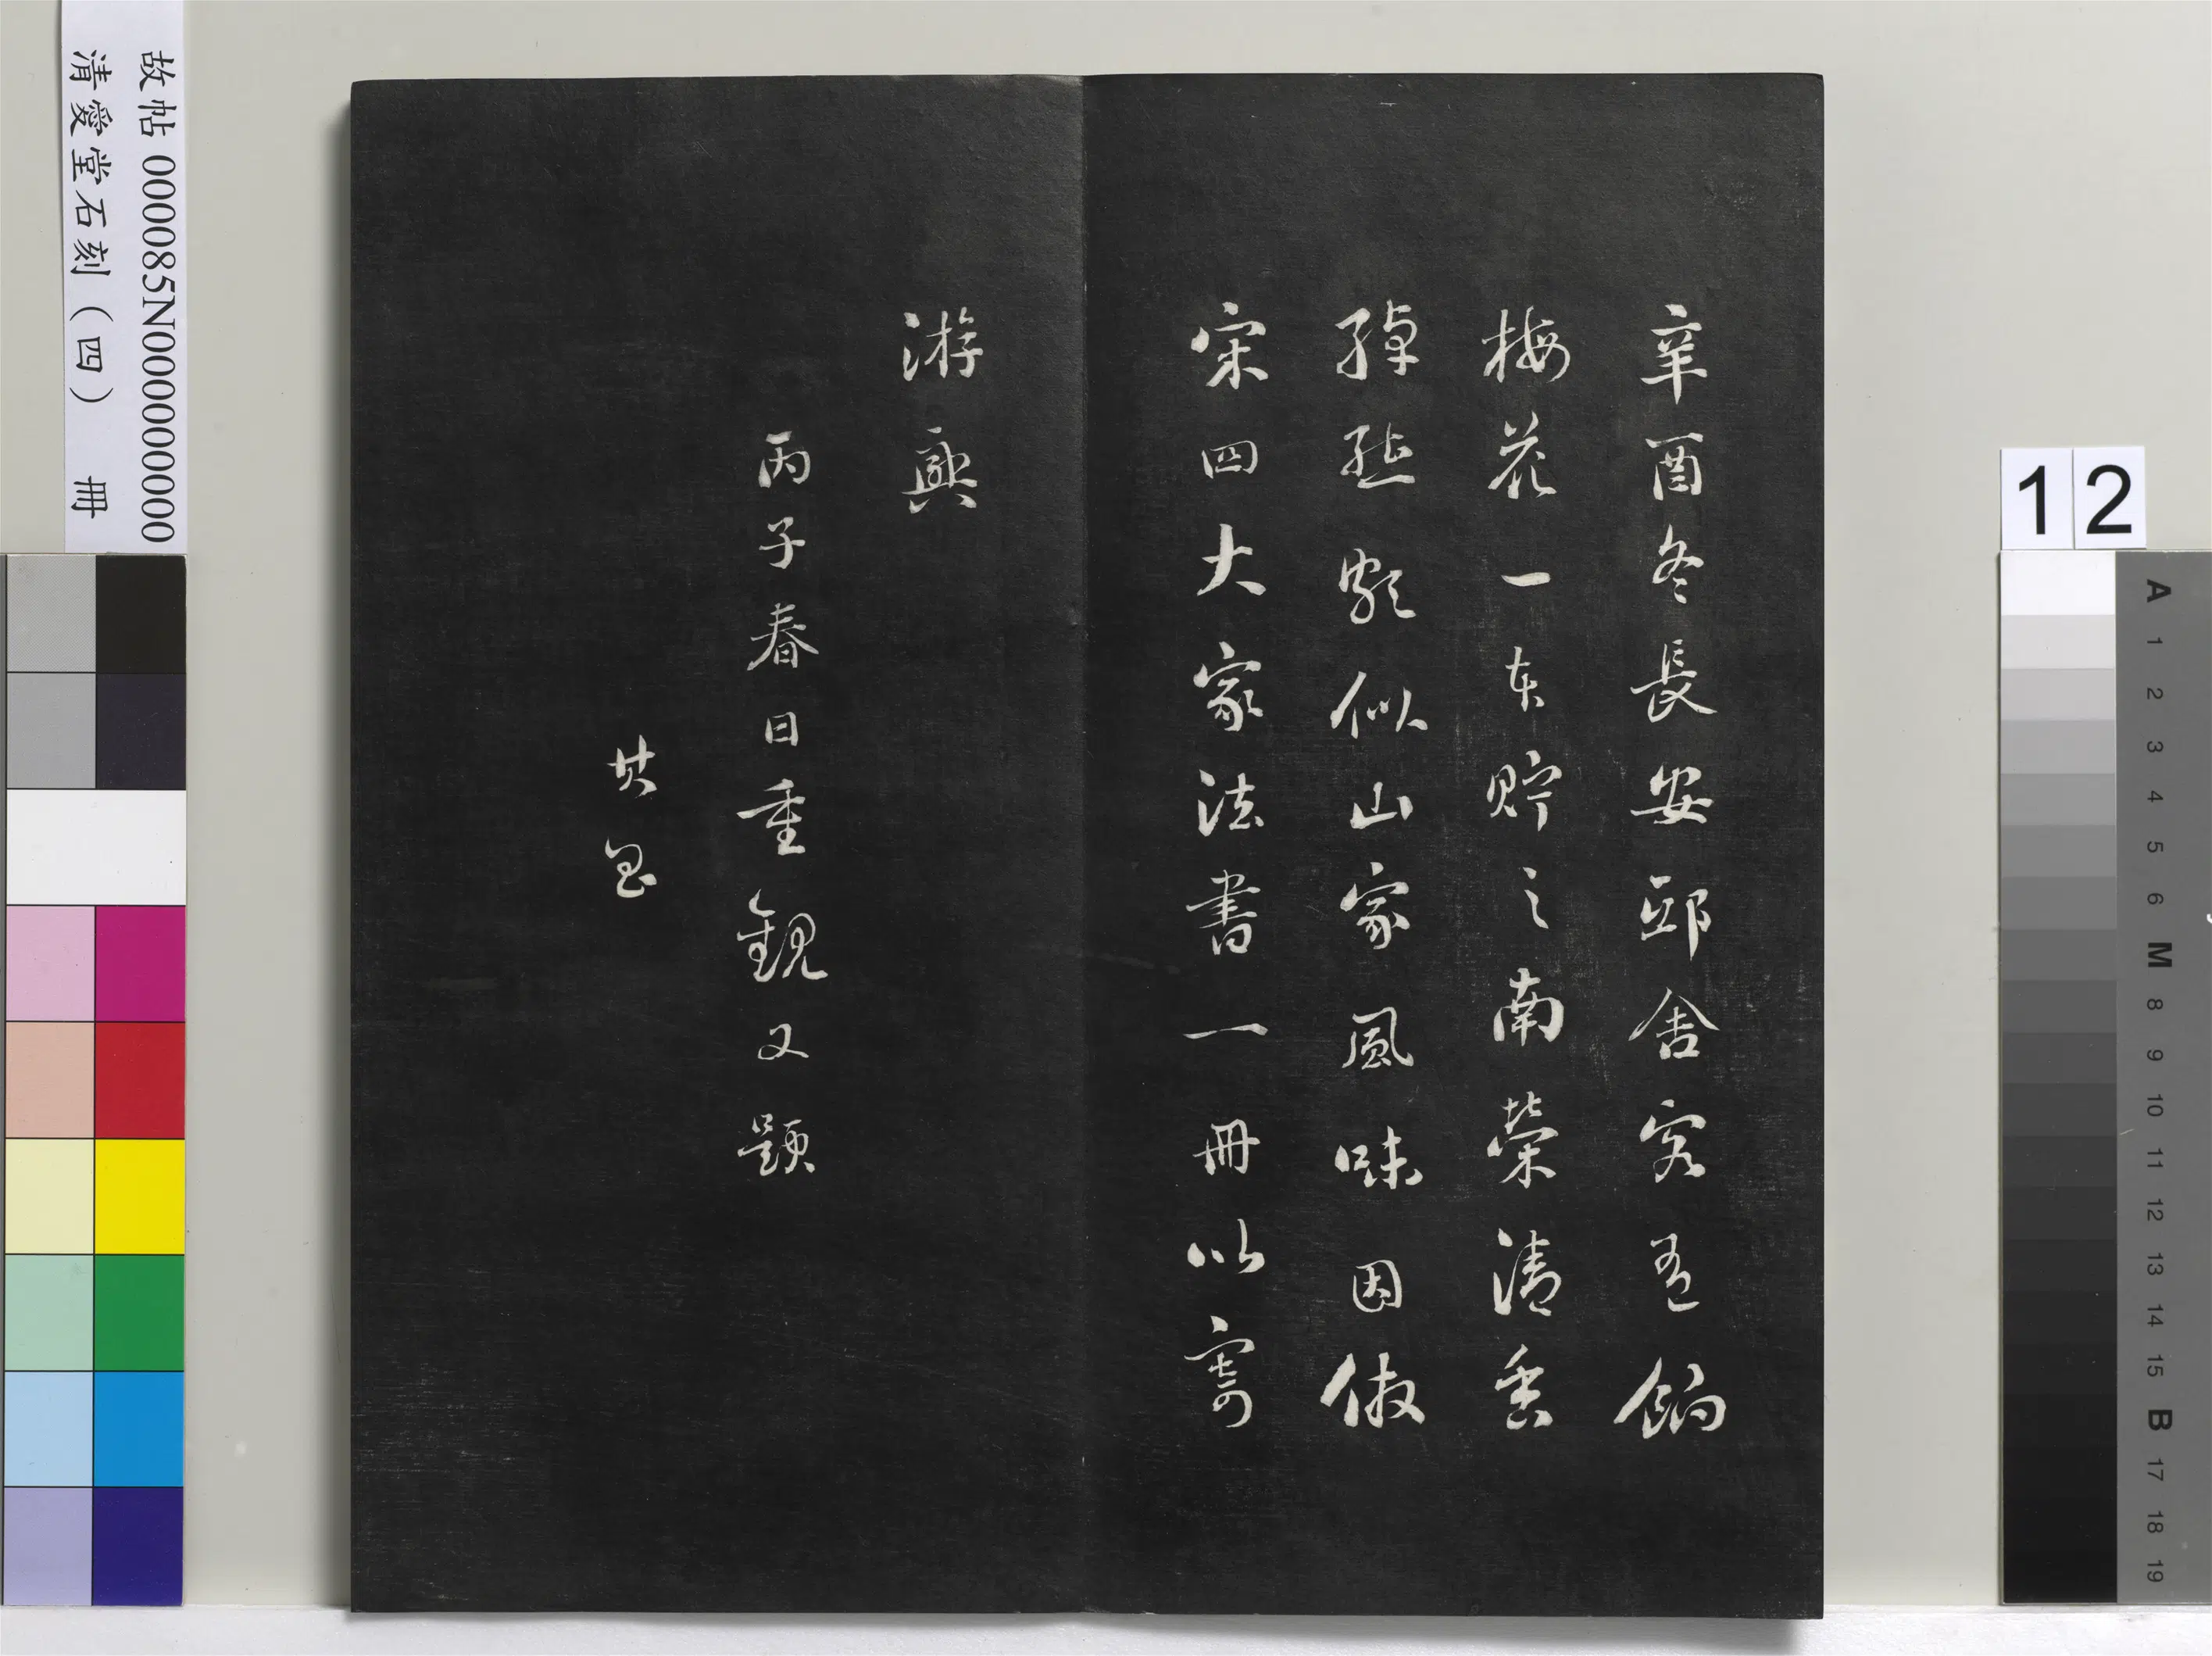 辛酉冬長安邸舍客有餉
梅花一束貯之南榮清香
綽 頗似山家風味因倣
宋四大家法書一冊以寄
游興
丙子春日重觀又題
其昌
故帖 000085N000000000
清愛堂石刻（四） 冊
12
A 1 2 3 4 5 6 M 8 9 10 11 12 13 14 15 B 17 18 19